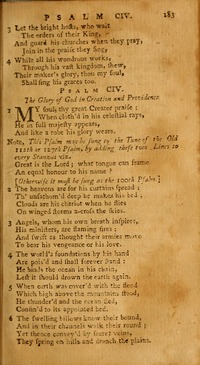 PSALM CIV. 183
3 Let the bright hosts, who wait
The orders of their King,
And guard his churches when they pray,
Join in the praise they sing,
4 While all his wondrous works,
Through his vast kingdom, shew,
Their maker's glory, thou my soul,
Shall sing his graces too.
PSALM CIV.
The Glory of God in Creation and Providence.
1 MY soul, thy great Creator praise:
When cloth'd in his celestial rays,
He in full majesty appears,
And like a robe his glory wears.
Note, This Psalm may be sung to the Tune of the Old
112th or 127th Psalm, by adding these two Lines to
every Stanza viz.
Great is the Lord; what tongue can frame
An equal honour to his name?
[Otherwise it must be sung as the 100th Psalm.]
2 The heavens are for his curtains spread;
Th' unfathom'd deep he makes his bed;
Clouds are his chariot when he flies
On winged storms across the skies.
3 Angels, whom his own breath inspires,
His ministers, are flaming fires:
And swift as thought their armies move
To bear his vengeance or his love.
4 The world's foundations by his hand
Are pois'd and shall forever stand:
He binds the ocean in his chain,
Lest it should drown the earth again.
5 When earth was cover'd with the flood
Which high above the mountains stood,
He thunder'd and the ocean fled,
Confin'd to its appointed bed.
6 The swelling billows know their bound,
And in their channels walk their round;
Yet thence convey'd by secret veins,
They spring on hills and drench the plains.